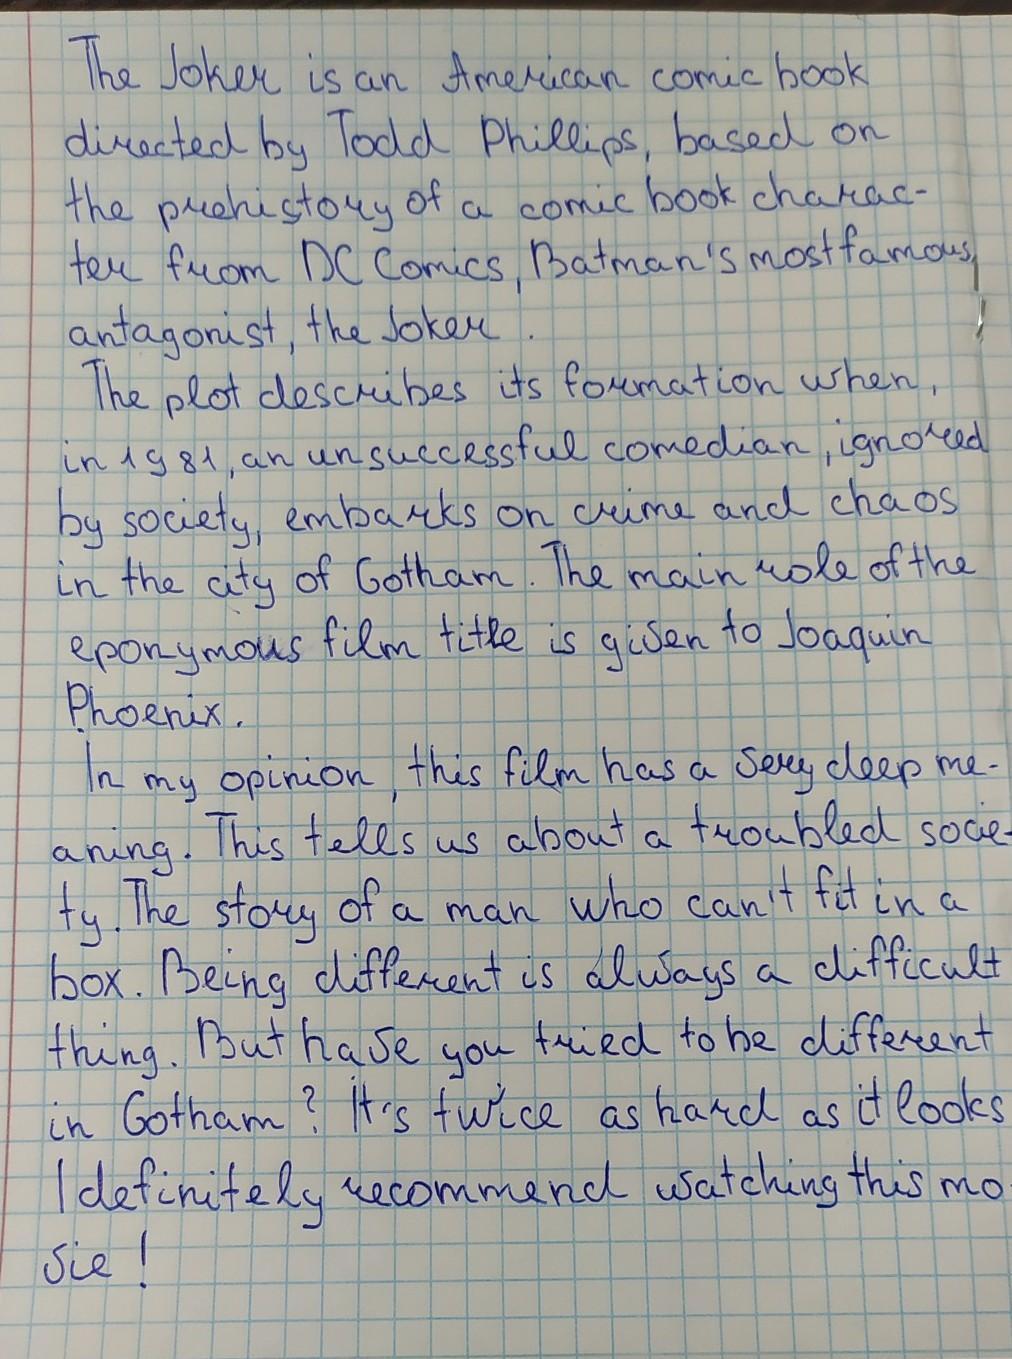 The Joker is an American comic book
directed by Todd Phillips, based on
the prehistory of a comic book charac-
ter from DC Comics, Batman's most famous
antagonist, the Joker.
The plot describes its formation when,
in 1981, an unsuccessful comedian, ignored
by society, embarks on crime and chaos
in the city of Gotham. The main role of the
eponymous film title is given to Joaquin
Phoenix.
In my opinion, this film has a very deep me-
aning. This tells us about a troubled socie-
ty. The story of a man who can't fit in a
box. Being different is always a difficult
thing. But have you tried to be different
in Gotham? It's twice as hard as it looks
I definitely recommend watching this mo
vie!